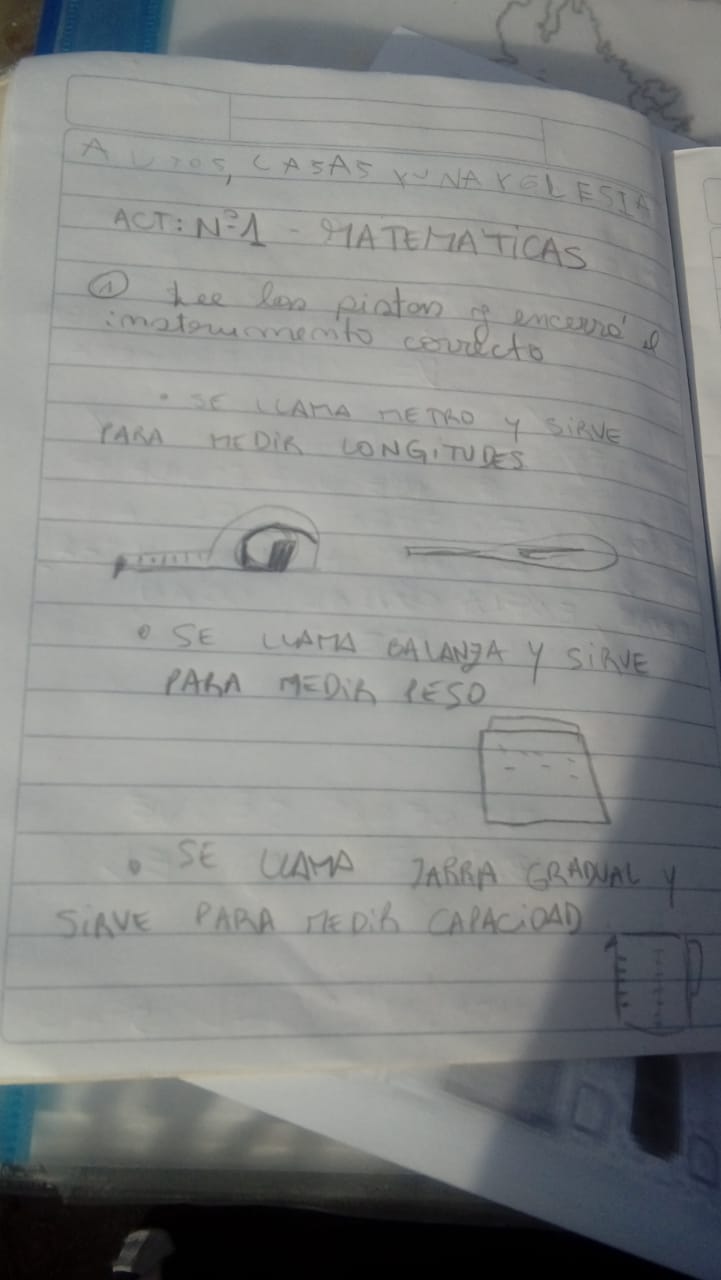 AUTOS, CASAS Y UNA YGLESIA
ACT: Nº1 - MATEMATICAS
① Lee las pistas y encerrá el
instrumento correcto
• SE LLAMA METRO Y SIRVE
PARA MEDIR LONGITUDES
• SE LLAMA BALANZA Y SIRVE
PARA MEDIR PESO
• SE LLAMA JARRA GRADUAL Y
SIRVE PARA MEDIR CAPACIDAD